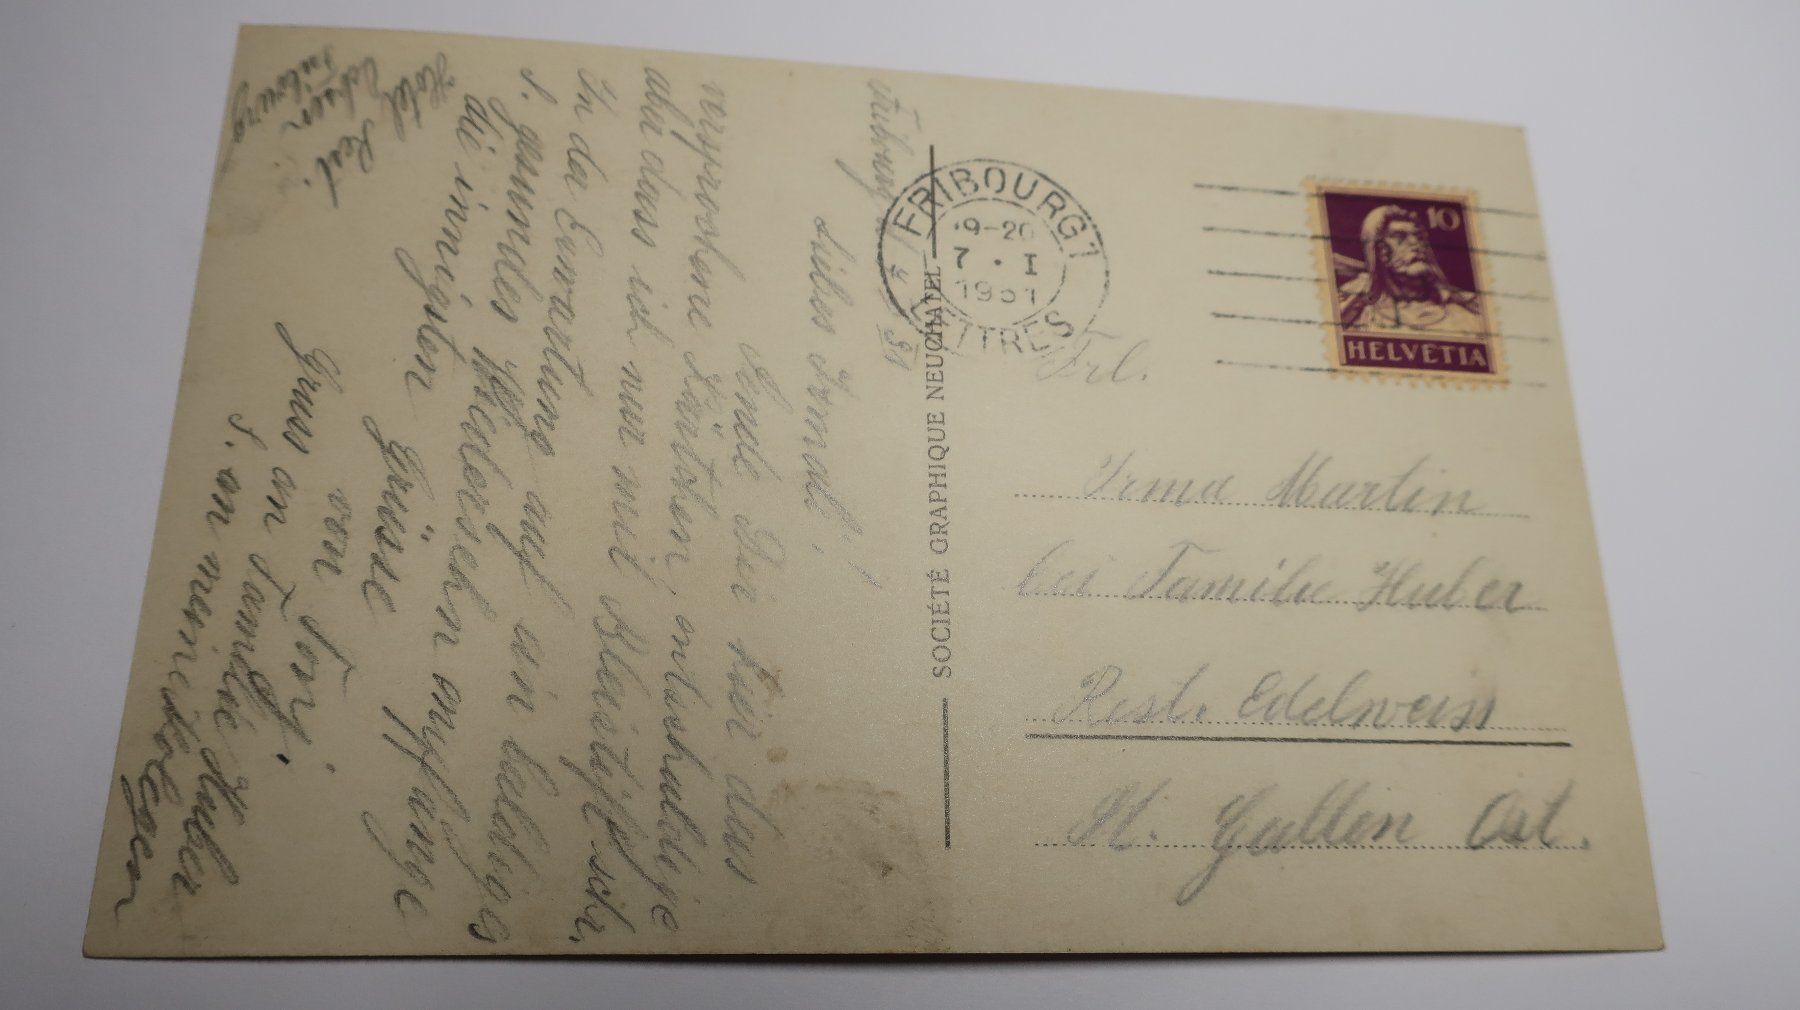 Liebes Irmal!
Sende Dir hier das
versprochene Kärtchen, entschuldige
aber dass ich nur mit Bleistift schr.
In da Erwartung auf ein baldiges
s. gesundes Wiedersehn empfange
die innigsten Grüsse
von
Gruss an Familie Huber
s. an meine
Hotel
Rest.
Fribourg
FRIBOURG 1
9-20
7 · I
1931
LETTRES
SOCIÉTÉ GRAPHIQUE NEUCHATEL
10
HELVETIA
Frl.
Irma Martin
bei Familie Huber
Rest. Edelweiss
St. Gallen Ost.